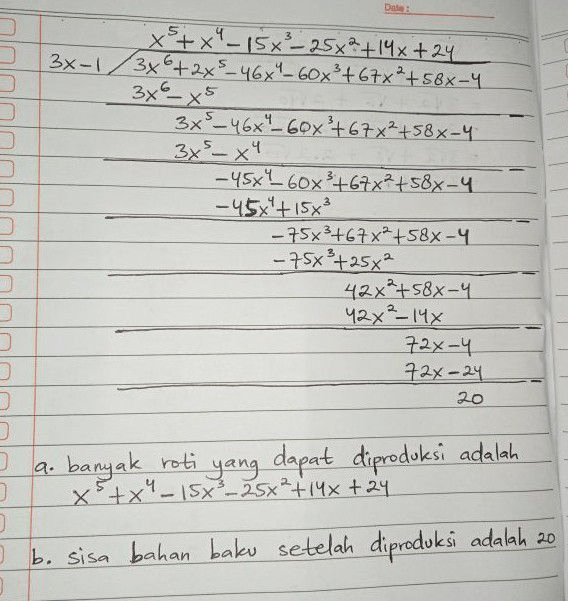 Date :
x⁵ + x⁴ - 15x³ - 25x² + 14x + 24
3x - 1 / 3x⁶ + 2x⁵ - 46x⁴ - 60x³ + 67x² + 58x - 4
3x⁶ - x⁵
-
3x⁵ - 46x⁴ - 60x³ + 67x² + 58x - 4
3x⁵ - x⁴
-
-45x⁴ - 60x³ + 67x² + 58x - 4
-45x⁴ + 15x³
-
-75x³ + 67x² + 58x - 4
-75x³ + 25x²
-
42x² + 58x - 4
42x² - 14x
-
72x - 4
72x - 24
-
20
a. banyak roti yang dapat diproduksi adalah
x⁵ + x⁴ - 15x³ - 25x² + 14x + 24
b. sisa bahan baku setelah diproduksi adalah 20